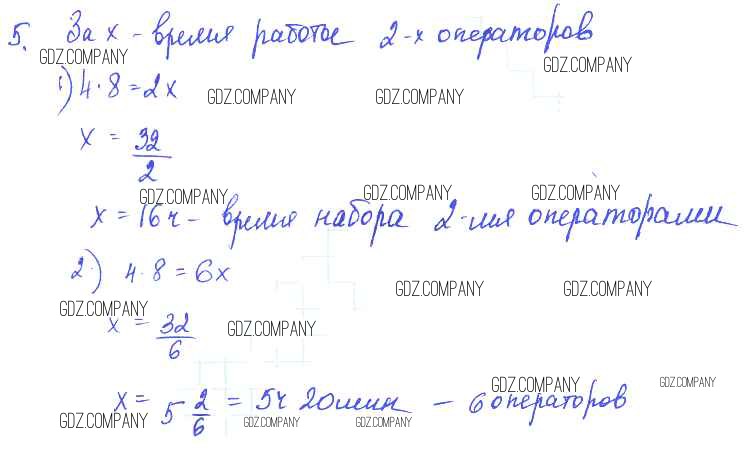 5. За x - время работы 2-х операторов
GDZ.COMPANY
GDZ.COMPANY
1) 4·8=2x
GDZ.COMPANY GDZ.COMPANY
x = 32/2
GDZ.COMPANY GDZ.COMPANY GDZ.COMPANY
x = 16 ч - время набора 2-мя операторами
2.) 4·8=6x
GDZ.COMPANY GDZ.COMPANY
GDZ.COMPANY
x = 32/6
GDZ.COMPANY
GDZ.COMPANY GDZ.COMPANY
x = 5 2/6 = 5ч 20мин - 6 операторов
GDZ.COMPANY GDZ.COMPANY GDZ.COMPANY